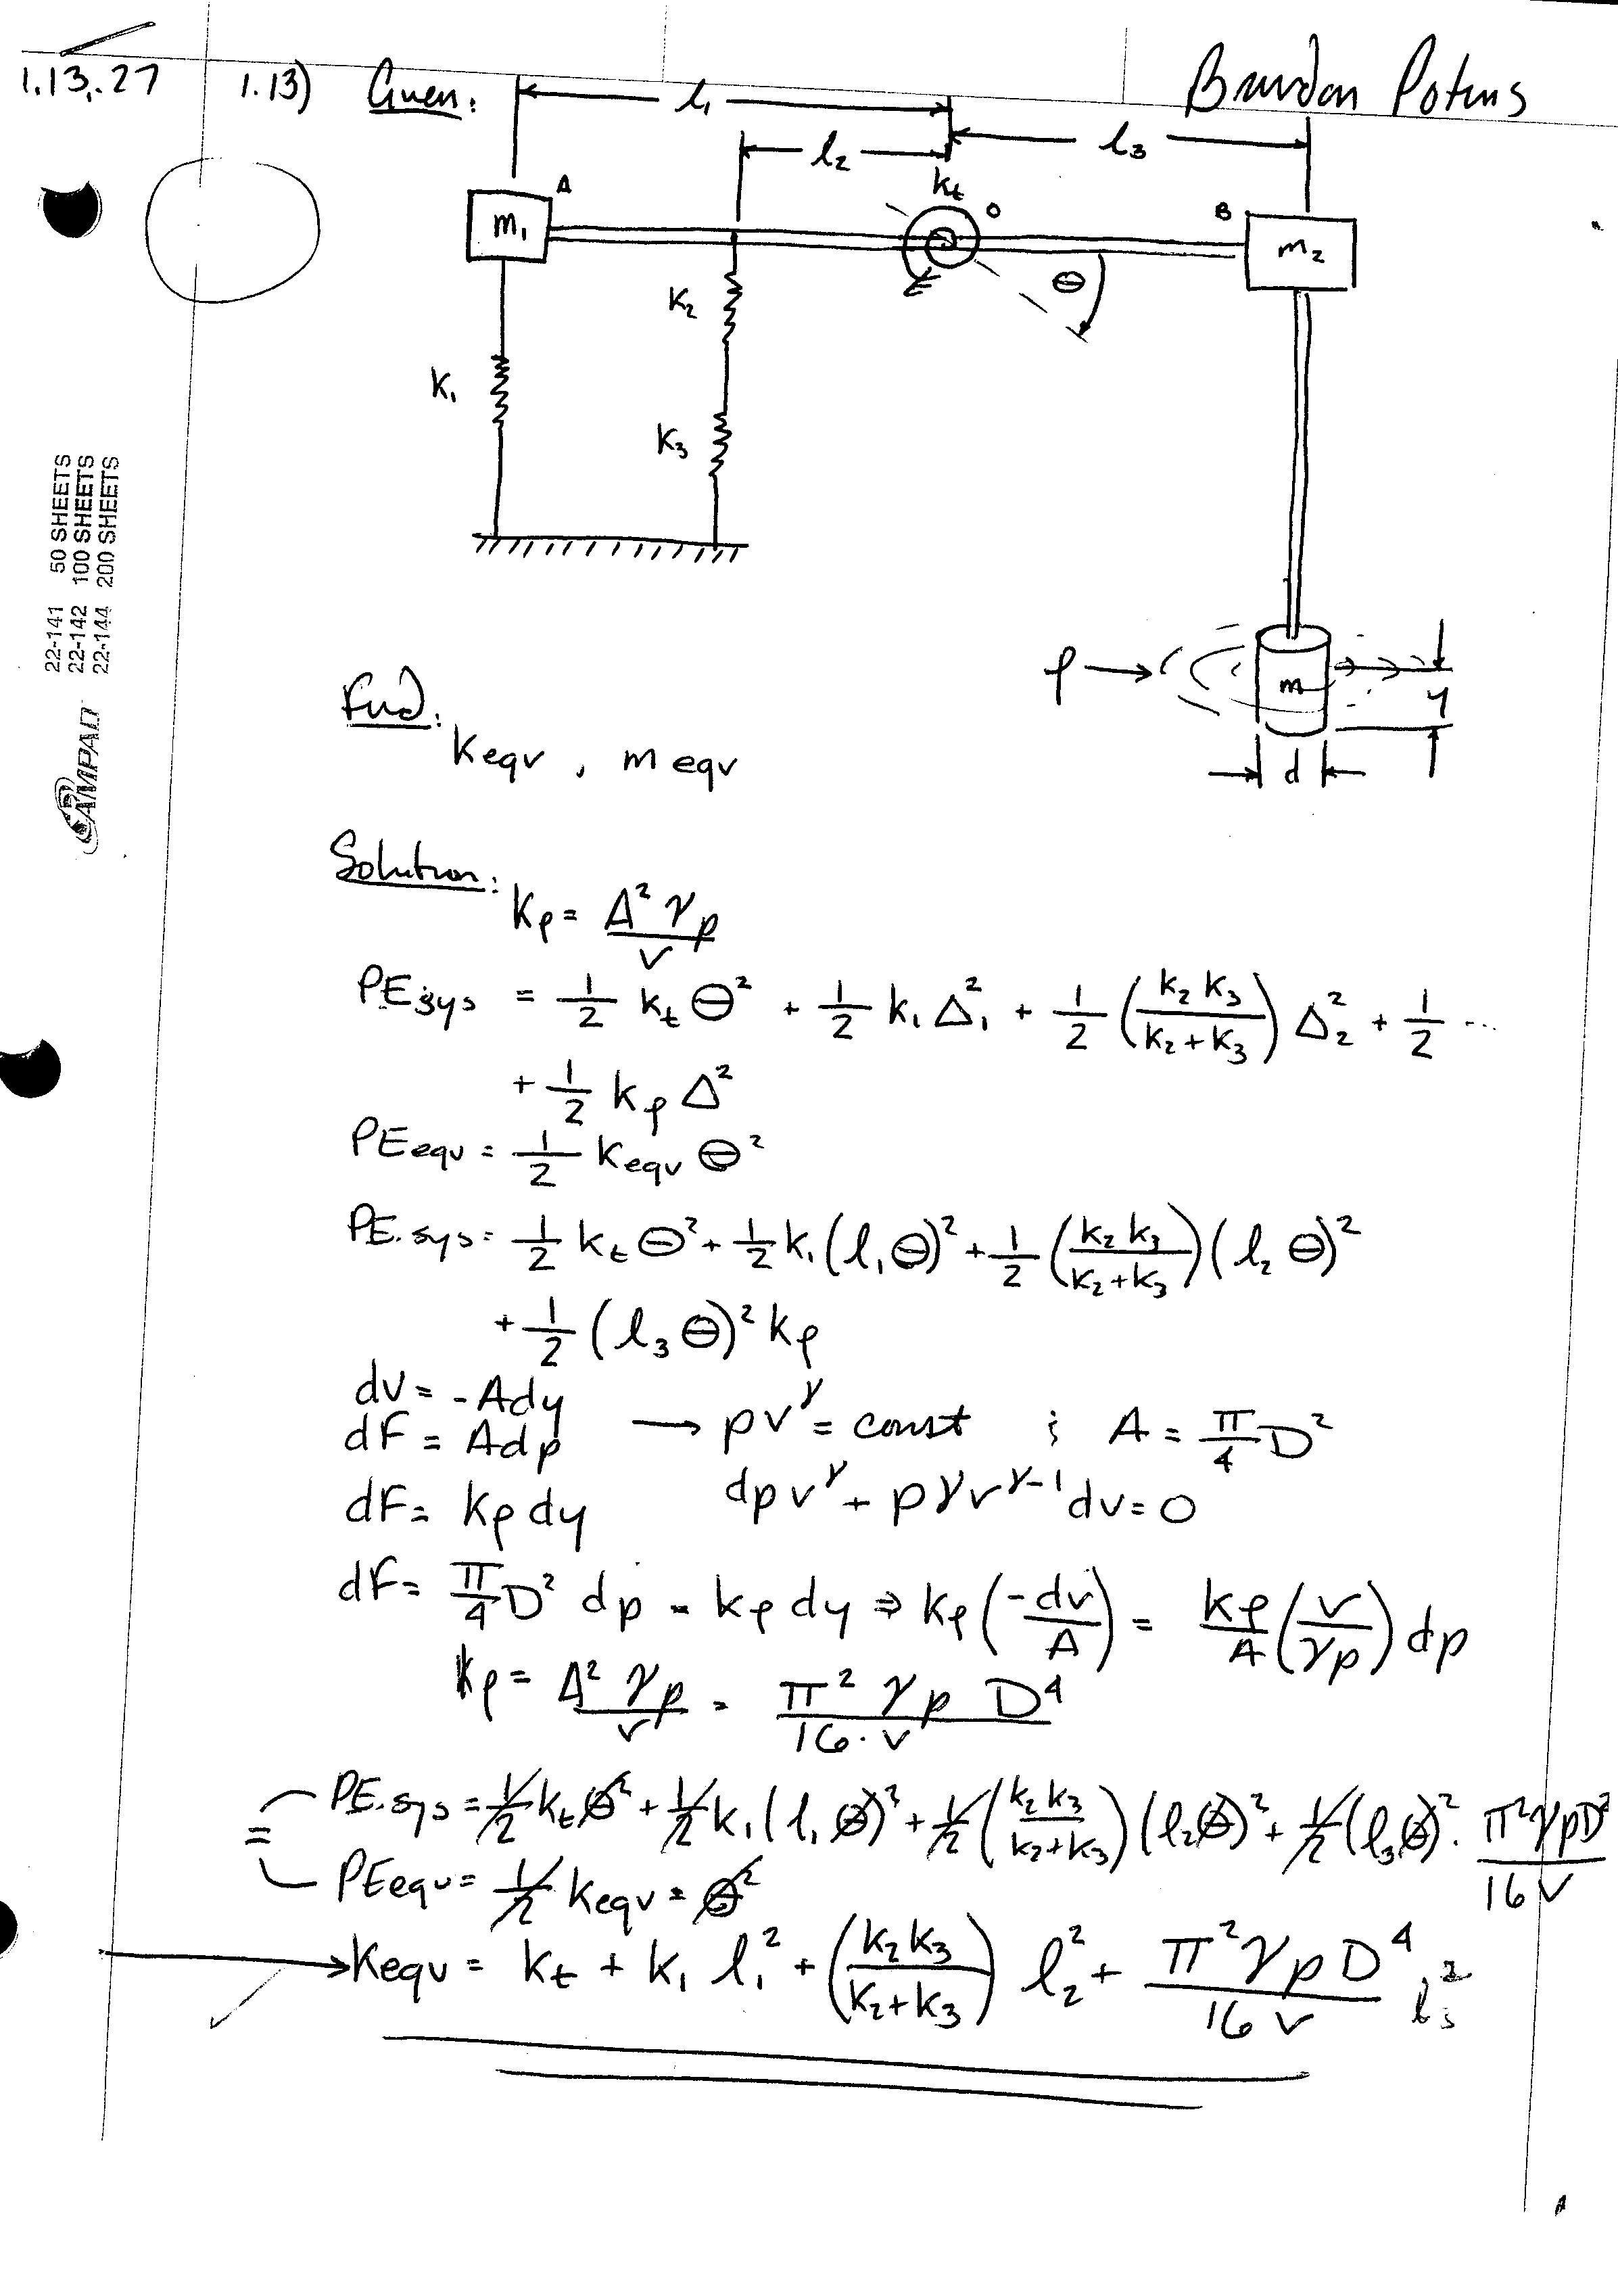 1.13, .27
1.13) Given:
l₁
l₂
l₃
kₜ
A
O
B
m₁
m₂
θ
k₂
k₁
k₃
50 SHEETS
100 SHEETS
200 SHEETS
22-141
22-142
22-144
AMPAD
ρ
m
y
d
Find:
Keqv , meqv
Solution:
Kρ = A²γp / v
PEsys = 1/2 kₜ θ² + 1/2 k₁ Δ₁² + 1/2 (k₂k₃ / k₂+k₃) Δ₂² + 1/2 ...
+ 1/2 kρ Δ²
PEequ = 1/2 Kequ θ²
PE.sys = 1/2 kₜ θ² + 1/2 k₁ (l₁θ)² + 1/2 (k₂k₃ / k₂+k₃) (l₂ θ)²
+ 1/2 (l₃ θ)² kρ
dv = -Ady
dF = Adp → pv^γ = const ; A = π/4 D²
dF = Kρ dy dp v^γ + pγv^(γ-1) dv = 0
dF = π/4 D² dp = kρ dy ⇒ kρ (-dv / A) = kρ/A (v / γp) dp
kρ = A²γp / v = π² γ p D⁴ / 16·v
= PE.sys = 1/2 kₜ θ² + 1/2 k₁ (l₁ θ)² + 1/2 (k₂k₃ / k₂+k₃) (l₂θ)² + 1/2 (l₃θ)² · π²γpD² / 16 v
PEequ = 1/2 kequ = θ²
→ Kequ = kₜ + k₁ l₁² + (k₂k₃ / k₂+k₃) l₂² + π²γpD⁴ / 16 v l₃²